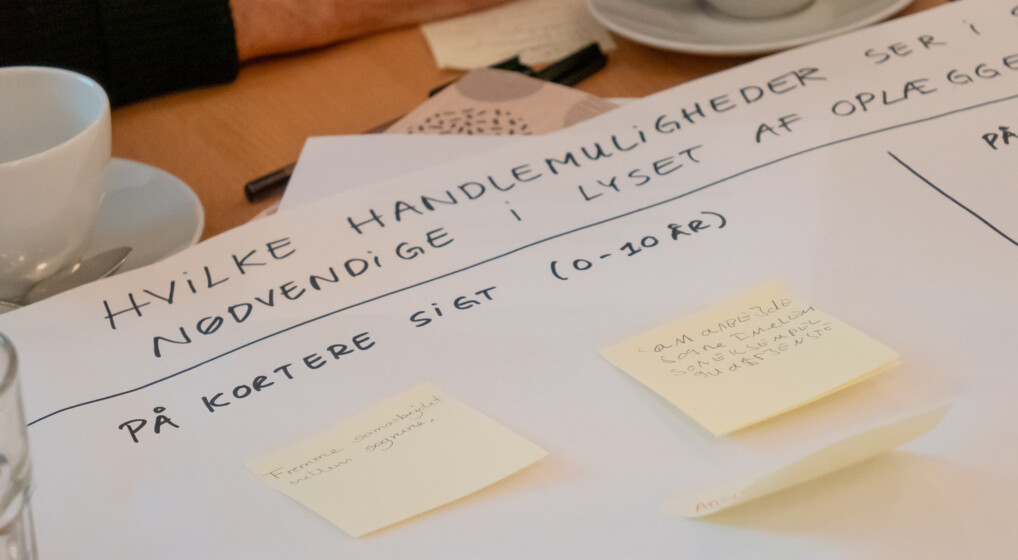 HVILKE HANDLEMULIGHEDER SER I
NØDVENDIGE I LYSET AF OPLÆGGE
PÅ KORTERE SIGT (0-10 ÅR)
PÅ
SAMARBEJDE
SOGNE IMELLEM
SOM EKSEMPEL
Fremme samarbejdet
mellem sognene.